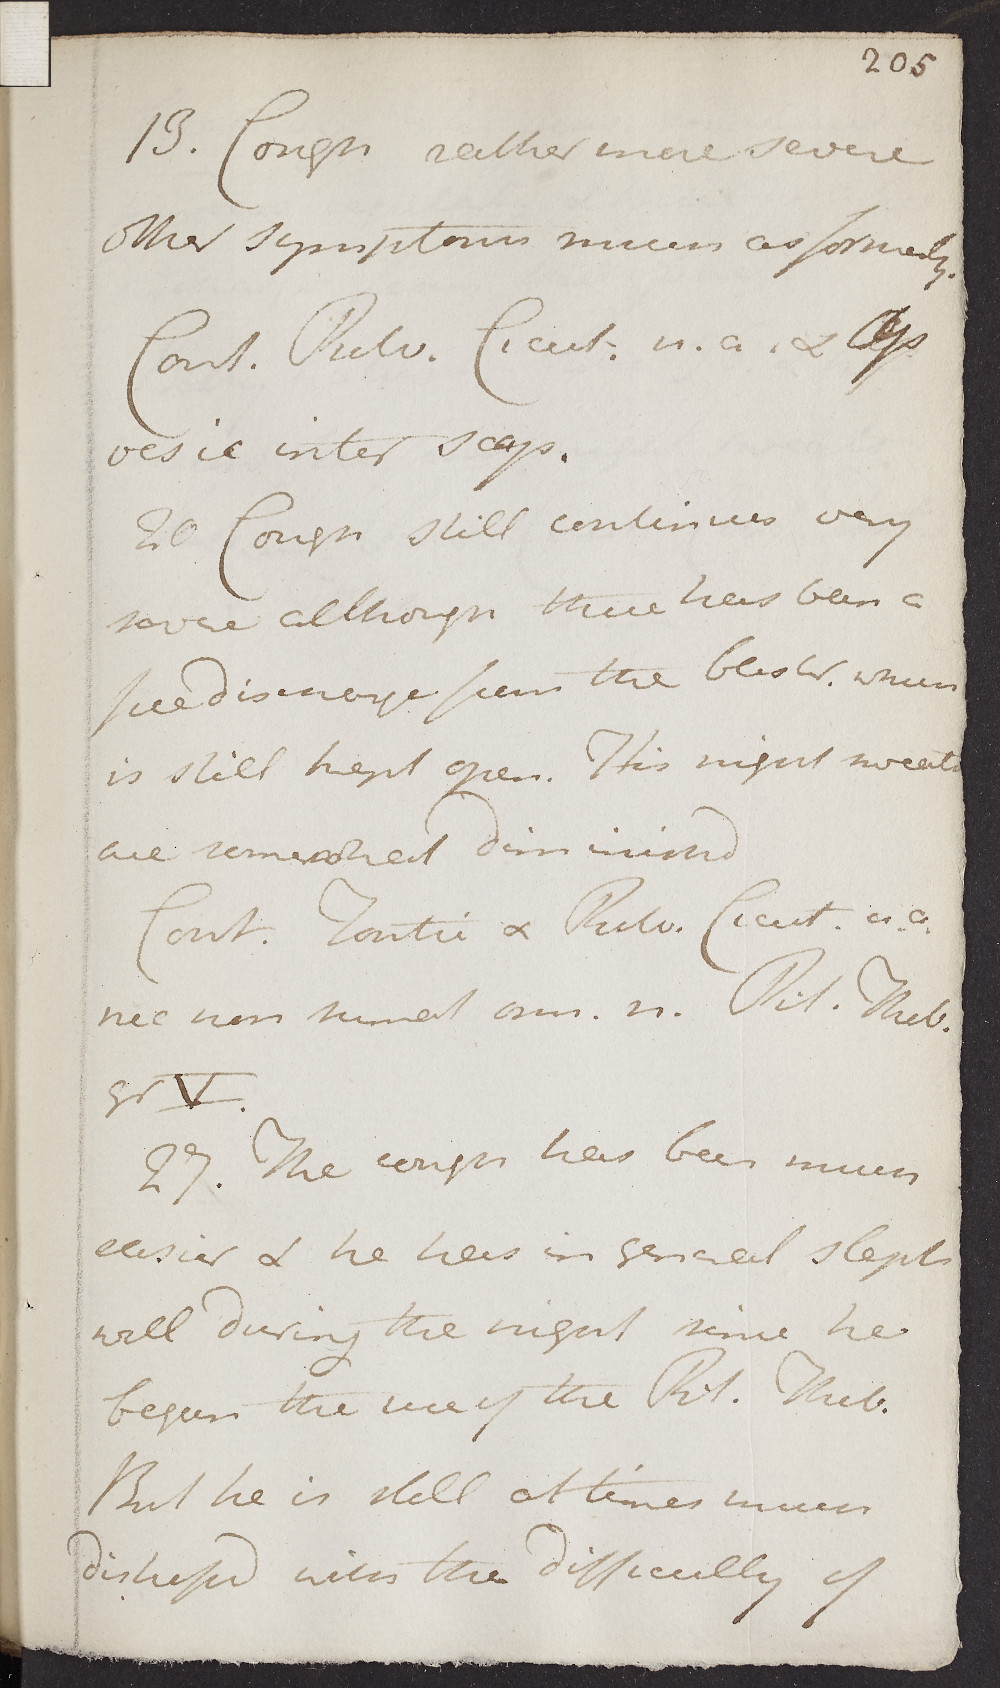 205
13. Cough rather more severe
other symptoms much as formerly.
Cont. Pulv. Cicut. u. a. & App
vesic inter scap.
20 Cough still continues very
severe although there has been a
free discharge from the blister. which
is still kept open. His night sweats
are somewhat diminishd
Cont. & Pulv. Cicut. u. a.
nec non sumat omn. n. Pil. Theb.
gr V.
27. The cough has been much
easier & he has in general slept
well during the night since he
began the use of the Pil. Theb.
But he is still at times much
distressd with the difficulty of